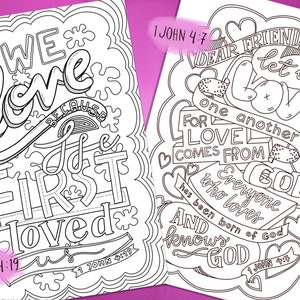 WE
Love
BECAUSE
He
FIRST
loved
us
1 JOHN 4:19
:19
1 JOHN 4:7
DEAR FRIENDS
let us
LOVE
one another
FOR
LOVE
COMES FROM
GOD
Everyone
who loves
has been born of God
AND
knows
GOD
1 JOHN 4:7